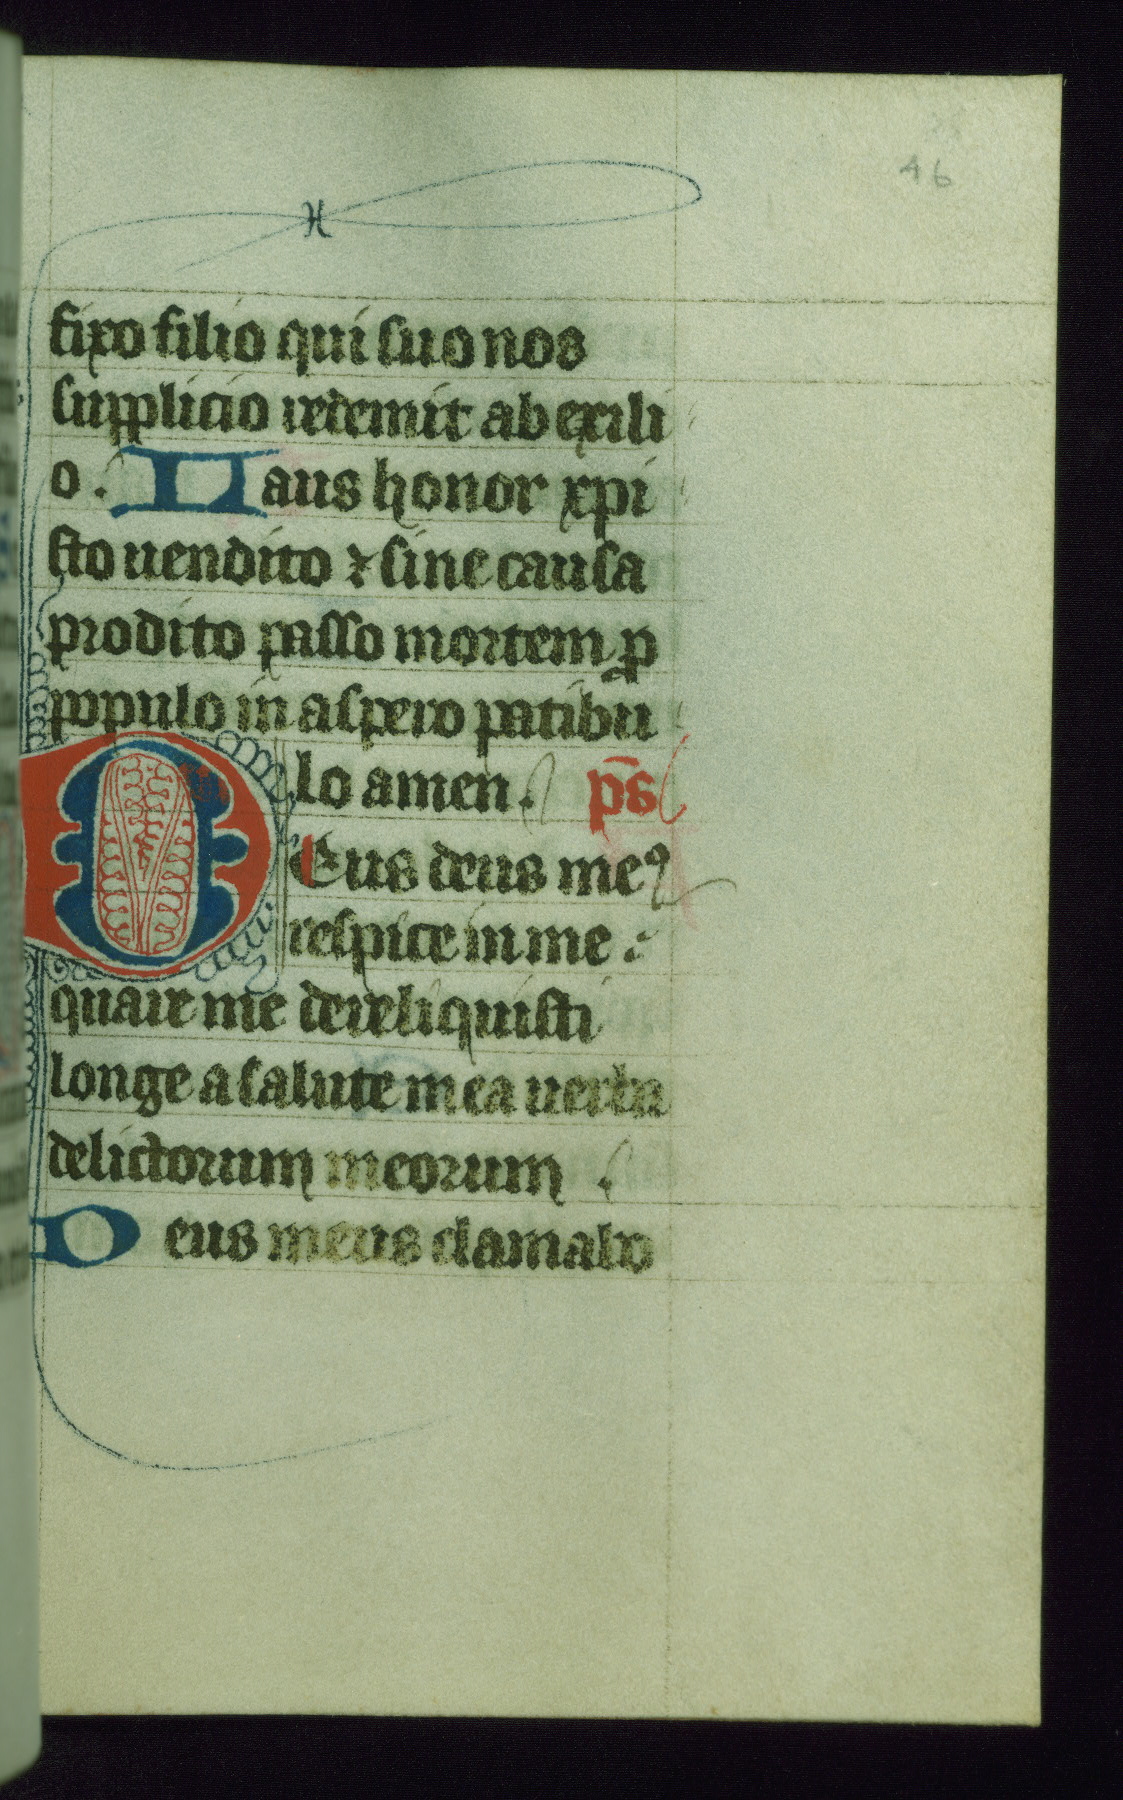 46
fixo filio qui suo nos
supplicio redemit ab exili
o. Laus honor xpi
sto uendito ⁊ sine causa
prodito passo mortem ꝓ
populo in aspero patibu
lo amen. ps̄
DEus deus meꝰ
respice in me :
quare me dereliquisti
longe a salute mea uerba
delictorum meorum .
Deus meus clamabo